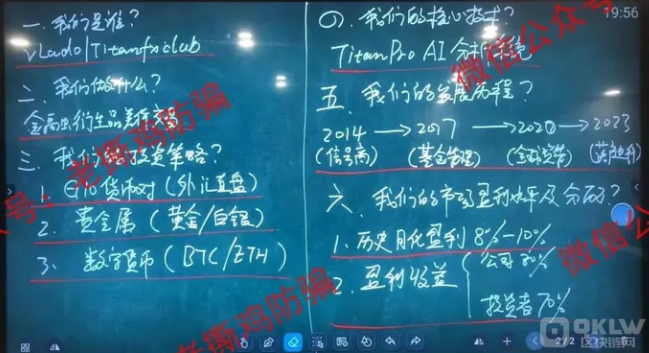 一. 我们是谁?
vlado/Titanfxclub
二. 我们做什么?
金融衍生品差价
三. 我们的投资策略?
1. 货币对(外汇直盘)
2. 贵金属(黄金/白银)
3. 数字货币(BTC/ETH)
四. 我们的核心技术?
TitanPro AI 分析系统
五. 我们的发展历程?
2014 → 2017 → 2020 → 2023
(信号商) (基金管理)
六. 我们的市场盈利水平及分配?
1. 历史月化盈利 8%-10%
2. 盈利收益
公司 30%
投资者 70%
19:56
微信公众号
公众号:老撕鸡防骗
老撕鸡防骗
微信公众号
2/2
OKLW
区块链网